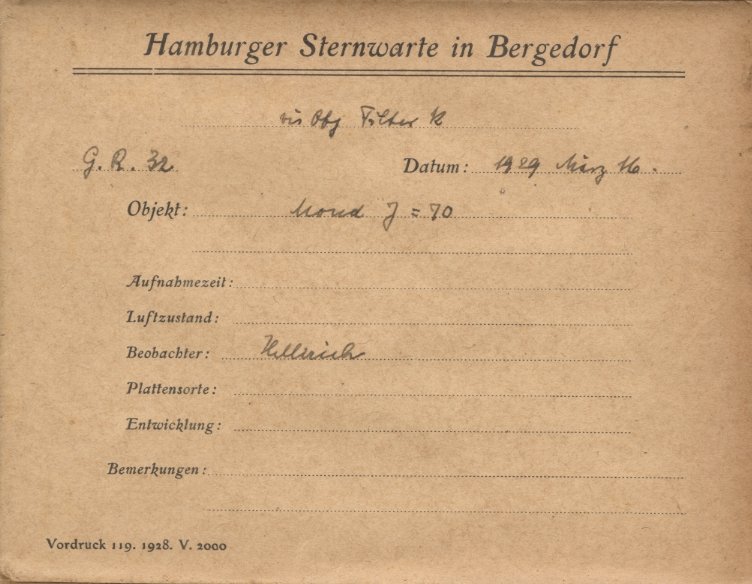 Hamburger Sternwarte in Bergedorf
vis Obj Filter K
G. R. 32 Datum: 1929 März 16.
Objekt: Mond J = 70
Aufnahmezeit:
Luftzustand:
Beobachter: Hellerich
Plattensorte:
Entwicklung:
Bemerkungen:
Vordruck 119. 1928. V. 2000